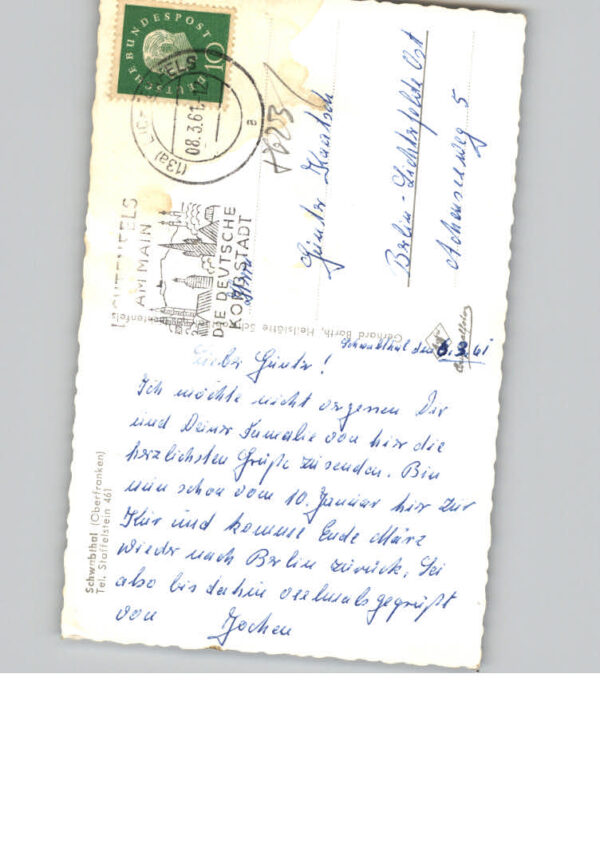 DEUTSCHE BUNDESPOST
10
(13a) LICHTENFELS
08.3.61-12
a
LICHTENFELS
AM MAIN
DIE DEUTSCHE
KORBSTADT
Günter
Berlin-Lichterfelde Ost
5
Gerhard Barth, Heilstätte
Schwabthal den 8.3.61
Lieber Günter!
Ich möchte nicht vergessen Dir
und Deiner Familie von hier die
herzlichsten Grüße zusenden. Bin
nun schon vom 10. Januar hier zur
Kur und komme Ende März
wieder nach Berlin zurück, Sei
also bis dahin vielmals gegrüßt
von Jochen
Schwabthal (Oberfranken)
Tel. Staffelstein 461